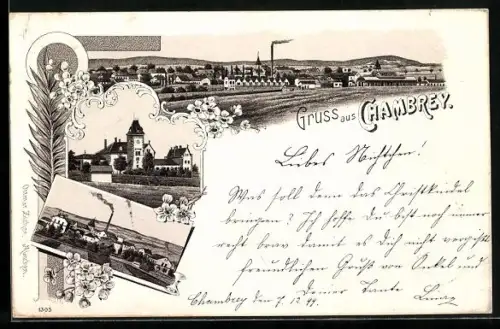 Gruss aus CHAMBREY.
Liebes Nichtchen!
Was soll denn das Christkindel
bringen? Ich hoffe du bist noch immer
recht brav damit es dich nicht vergißt
freundlichen Gruß von Onkel und
Deiner Tante
Chambrey den 7. 12. 99.
1305